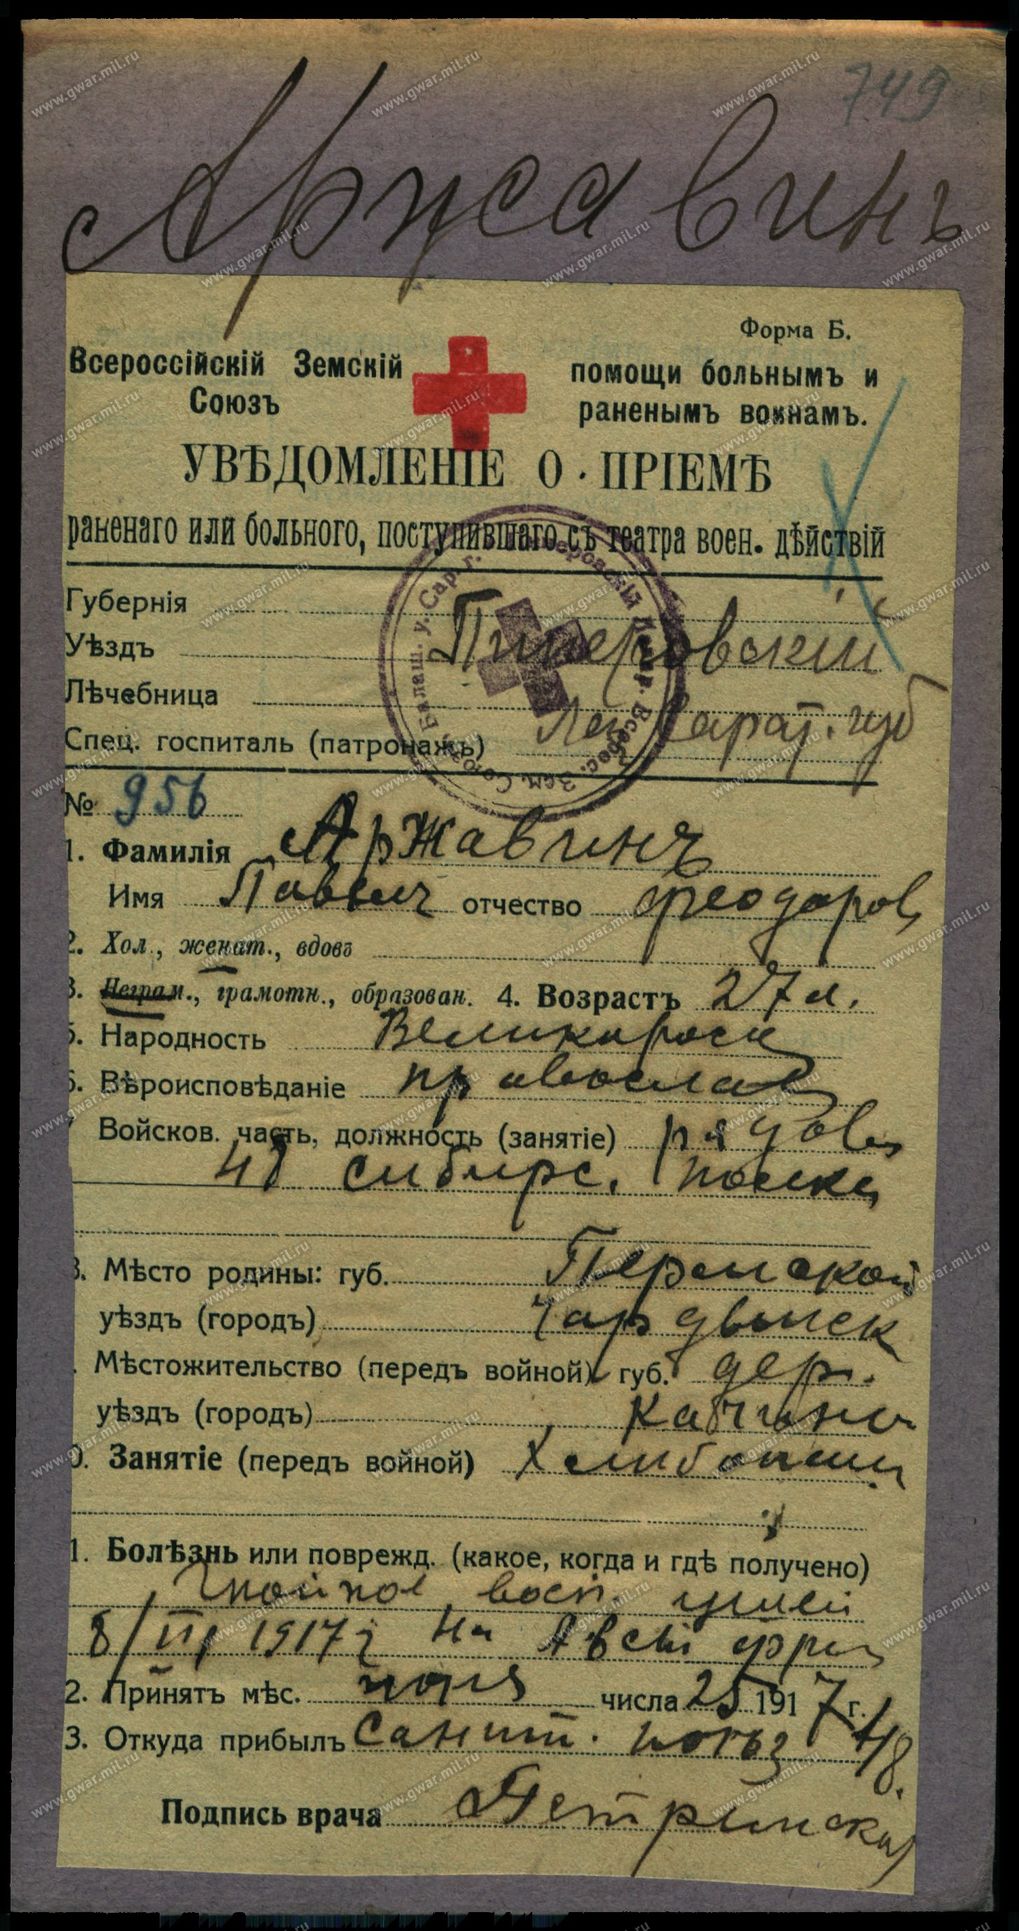 749
Аржавинъ
Форма Б.
Всероссійскій Земскій Союзъ
помощи больнымъ и раненымъ воинамъ.
УВѢДОМЛЕНІЕ О ПРІЕМѢ
раненаго или больного, поступившаго съ театра воен. дѣйствій
Губернія
Уѣздъ Пинеровскій
Лѣчебница
Спец. госпиталь (патронажъ) Сарат. губ
№ 956
1. Фамилія Аржавинъ
Имя Павелъ отчество Феодоров
2. Хол., женат., вдовъ
3. Неграм., грамотн., образован. 4. Возрастъ 27 л.
5. Народность Великоросс
6. Вѣроисповѣданіе православ
Войсков. часть, должность (занятіе) рядов
48 сибирс. полка
8. Мѣсто родины: губ. Пермской
уѣздъ (городъ) Чардынск
Мѣстожительство (передъ войной) губ. дер.
уѣздъ (городъ)
0. Занятіе (передъ войной)
1. Болѣзнь или поврежд. (какое, когда и гдѣ получено)
Гнойное восп ушей
1917 г на Авст фрон
2. Принятъ мѣс. числа 25 1917 г.
3. Откуда прибылъ Санит. поѣз
Подпись врача
www.gwar.mil.ru